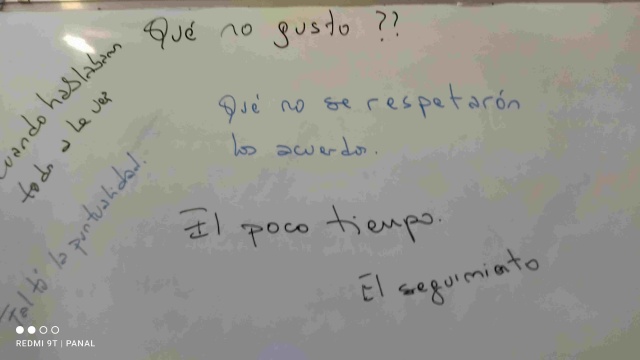 Qué no gusto ??
cuando hablaban
todo a la vez
Qué no se respetarón
los acuerdor.
Faltó la puntualidad.
El poco tiempo.
El seguimiento
REDMI 9T | PANAL